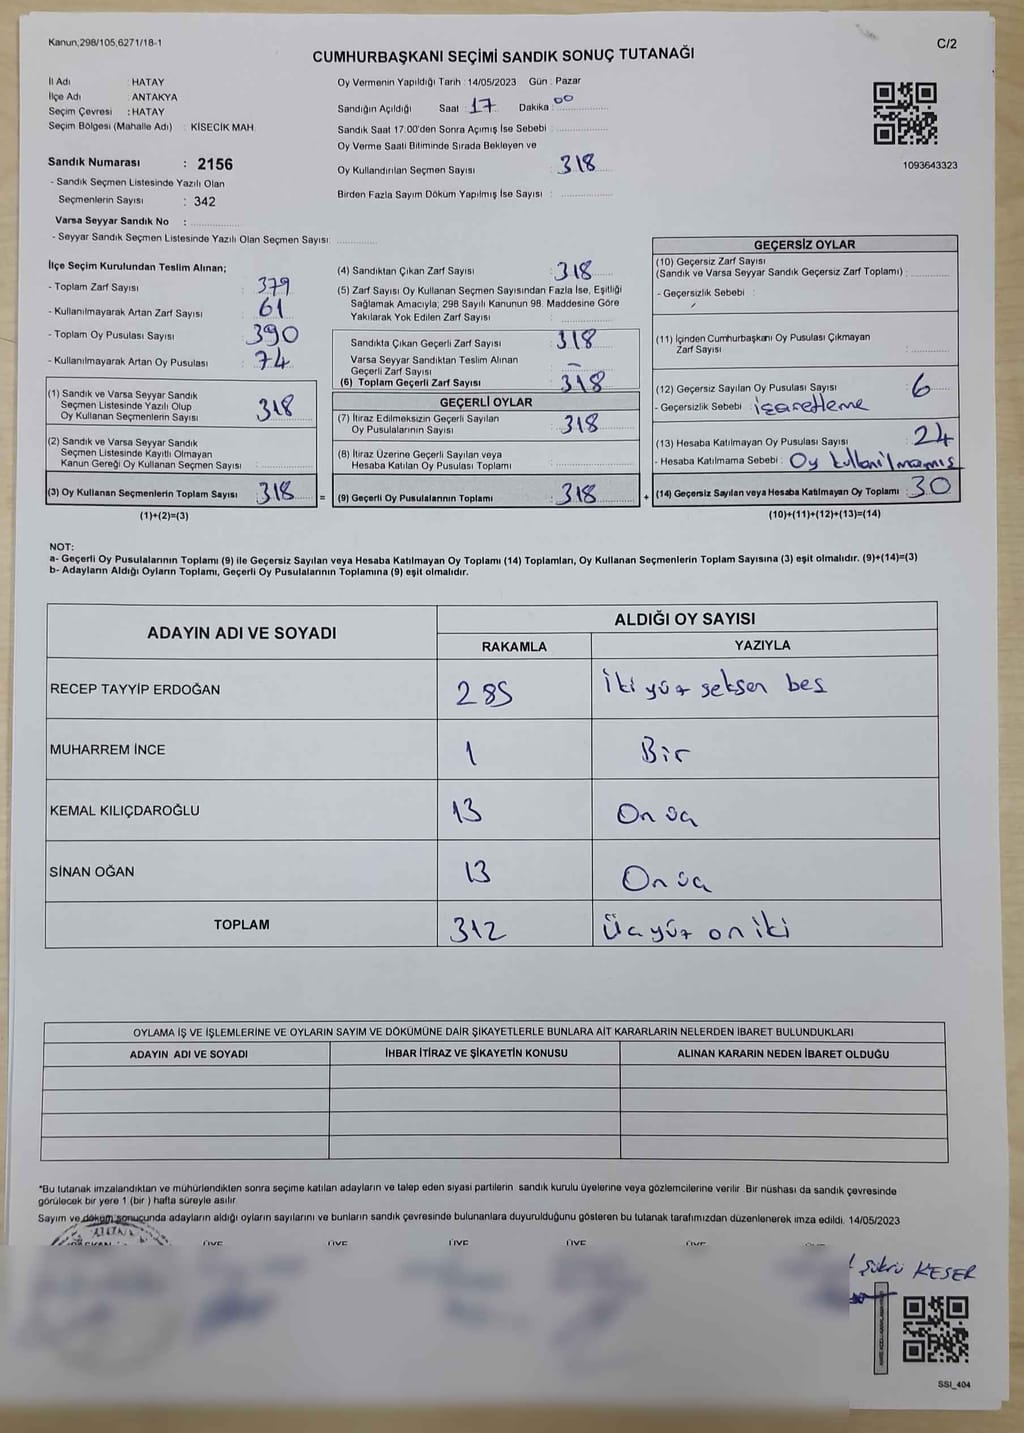 Kanun;298/105,6271/18-1
C/2
CUMHURBAŞKANI SEÇİMİ SANDIK SONUÇ TUTANAĞI
İl Adı : HATAY
İlçe Adı : ANTAKYA
Seçim Çevresi : HATAY
Seçim Bölgesi (Mahalle Adı) : KİSECİK MAH.
Sandık Numarası : 2156
- Sandık Seçmen Listesinde Yazılı Olan
Seçmenlerin Sayısı : 342
Varsa Seyyar Sandık No :
- Seyyar Sandık Seçmen Listesinde Yazılı Olan Seçmen Sayısı:
Oy Vermenin Yapıldığı Tarih : 14/05/2023 Gün : Pazar
Sandığın Açıldığı Saat : 17 Dakika : 00
Sandık Saat 17:00'den Sonra Açımış İse Sebebi :
Oy Verme Saati Bitiminde Sırada Bekleyen ve
Oy Kullandırılan Seçmen Sayısı : 318
Birden Fazla Sayım Döküm Yapılmış İse Sayısı :
1093643323
İlçe Seçim Kurulundan Teslim Alınan;
- Toplam Zarf Sayısı : 379
- Kullanılmayarak Artan Zarf Sayısı : 61
- Toplam Oy Pusulası Sayısı : 390
- Kullanılmayarak Artan Oy Pusulası : 74
(1) Sandık ve Varsa Seyyar Sandık
Seçmen Listesinde Yazılı Olup
Oy Kullanan Seçmenlerin Sayısı : 318
(2) Sandık ve Varsa Seyyar Sandık
Seçmen Listesinde Kayıtlı Olmayan
Kanun Gereği Oy Kullanan Seçmen Sayısı :
(3) Oy Kullanan Seçmenlerin Toplam Sayısı : 318
(1)+(2)=(3)
=
(4) Sandıktan Çıkan Zarf Sayısı : 318
(5) Zarf Sayısı Oy Kullanan Seçmen Sayısından Fazla İse, Eşitliği
Sağlamak Amacıyla; 298 Sayılı Kanunun 98. Maddesine Göre
Yakılarak Yok Edilen Zarf Sayısı :
Sandıkta Çıkan Geçerli Zarf Sayısı : 318
Varsa Seyyar Sandıktan Teslim Alınan
Geçerli Zarf Sayısı : –
(6) Toplam Geçerli Zarf Sayısı : 318
GEÇERLİ OYLAR
(7) İtiraz Edilmeksizin Geçerli Sayılan
Oy Pusulalarının Sayısı : 318
(8) İtiraz Üzerine Geçerli Sayılan veya
Hesaba Katılan Oy Pusulası Toplamı :
(9) Geçerli Oy Pusulalarının Toplamı : 318
+
GEÇERSİZ OYLAR
(10) Geçersiz Zarf Sayısı
(Sandık ve Varsa Seyyar Sandık Geçersiz Zarf Toplamı) :
- Geçersizlik Sebebi :
(11) İçinden Cumhurbaşkanı Oy Pusulası Çıkmayan
Zarf Sayısı :
(12) Geçersiz Sayılan Oy Pusulası Sayısı : 6
- Geçersizlik Sebebi : işaretleme
(13) Hesaba Katılmayan Oy Pusulası Sayısı : 24
- Hesaba Katılmama Sebebi : Oy kullanılmamış
(14) Geçersiz Sayılan veya Hesaba Katılmayan Oy Toplamı : 30
(10)+(11)+(12)+(13)=(14)
NOT:
a- Geçerli Oy Pusulalarının Toplamı (9) ile Geçersiz Sayılan veya Hesaba Katılmayan Oy Toplamı (14) Toplamları, Oy Kullanan Seçmenlerin Toplam Sayısına (3) eşit olmalıdır. (9)+(14)=(3)
b- Adayların Aldığı Oyların Toplamı, Geçerli Oy Pusulalarının Toplamına (9) eşit olmalıdır.
ADAYIN ADI VE SOYADI
ALDIĞI OY SAYISI
RAKAMLA YAZIYLA
RECEP TAYYİP ERDOĞAN 285 İki yüz seksen beş
MUHARREM İNCE 1 Bir
KEMAL KILIÇDAROĞLU 13 On üç
SİNAN OĞAN 13 On üç
TOPLAM 312 Üç yüz on iki
OYLAMA İŞ VE İŞLEMLERİNE VE OYLARIN SAYIM VE DÖKÜMÜNE DAİR ŞİKAYETLERLE BUNLARA AİT KARARLARIN NELERDEN İBARET BULUNDUKLARI
ADAYIN ADI VE SOYADI İHBAR İTİRAZ VE ŞİKAYETİN KONUSU ALINAN KARARIN NEDEN İBARET OLDUĞU
*Bu tutanak imzalandıktan ve mühürlendikten sonra seçime katılan adayların ve talep eden siyasi partilerin sandık kurulu üyelerine veya gözlemcilerine verilir. Bir nüshası da sandık çevresinde
görülecek bir yere 1 (bir ) hafta süreyle asılır.
Sayım ve döküm sonucunda adayların aldığı oyların sayılarını ve bunların sandık çevresinde bulunanlara duyurulduğunu gösteren bu tutanak tarafımızdan düzenlenerek imza edildi. 14/05/2023
ÜYE ÜYE ÜYE ÜYE ÜYE
Şükrü KESER
SSI_404